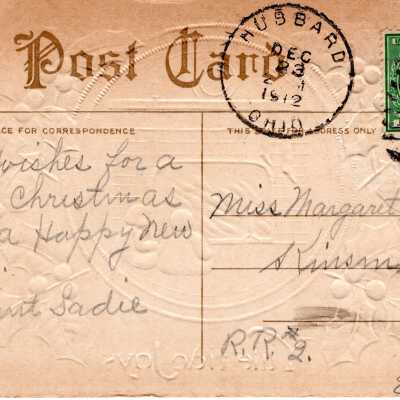 Post Card
HUBBARD
DEC
23
1912
OHIO
CE FOR CORRESPONDENCE
THIS SPACE FOR ADDRESS ONLY
wishes for a
Christmas
a Happy New
Sadie
Miss Margaret
Kinsm
R.R. #2.